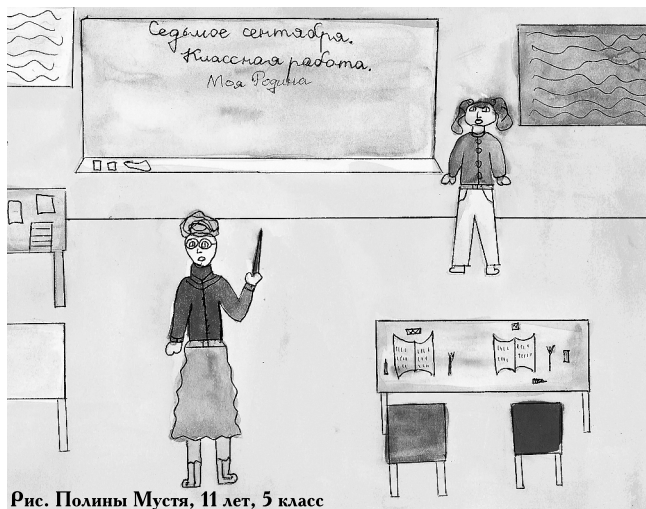 Седьмое сентября.
Классная работа.
Моя Родина
Рис. Полины Мустя, 11 лет, 5 класс